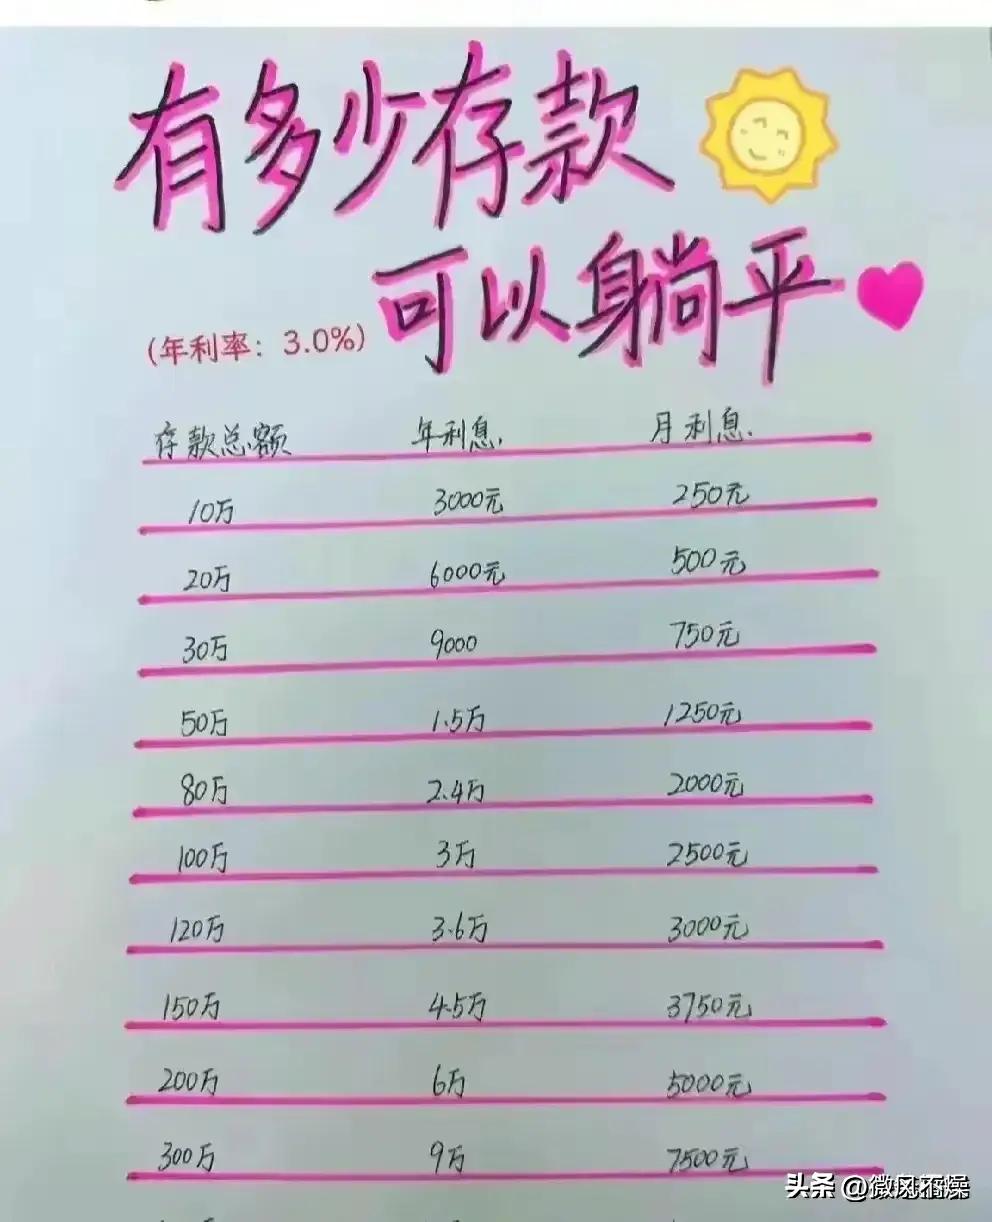 有多少存款
可以躺平
(年利率：3.0%)
存款总额 年利息 月利息
10万 3000元 250元
20万 6000元 500元
30万 9000 750元
50万 1.5万 1250元
80万 2.4万 2000元
100万 3万 2500元
120万 3.6万 3000元
150万 4.5万 3750元
200万 6万 5000元
300万 9万 7500元
头条 @微风不燥